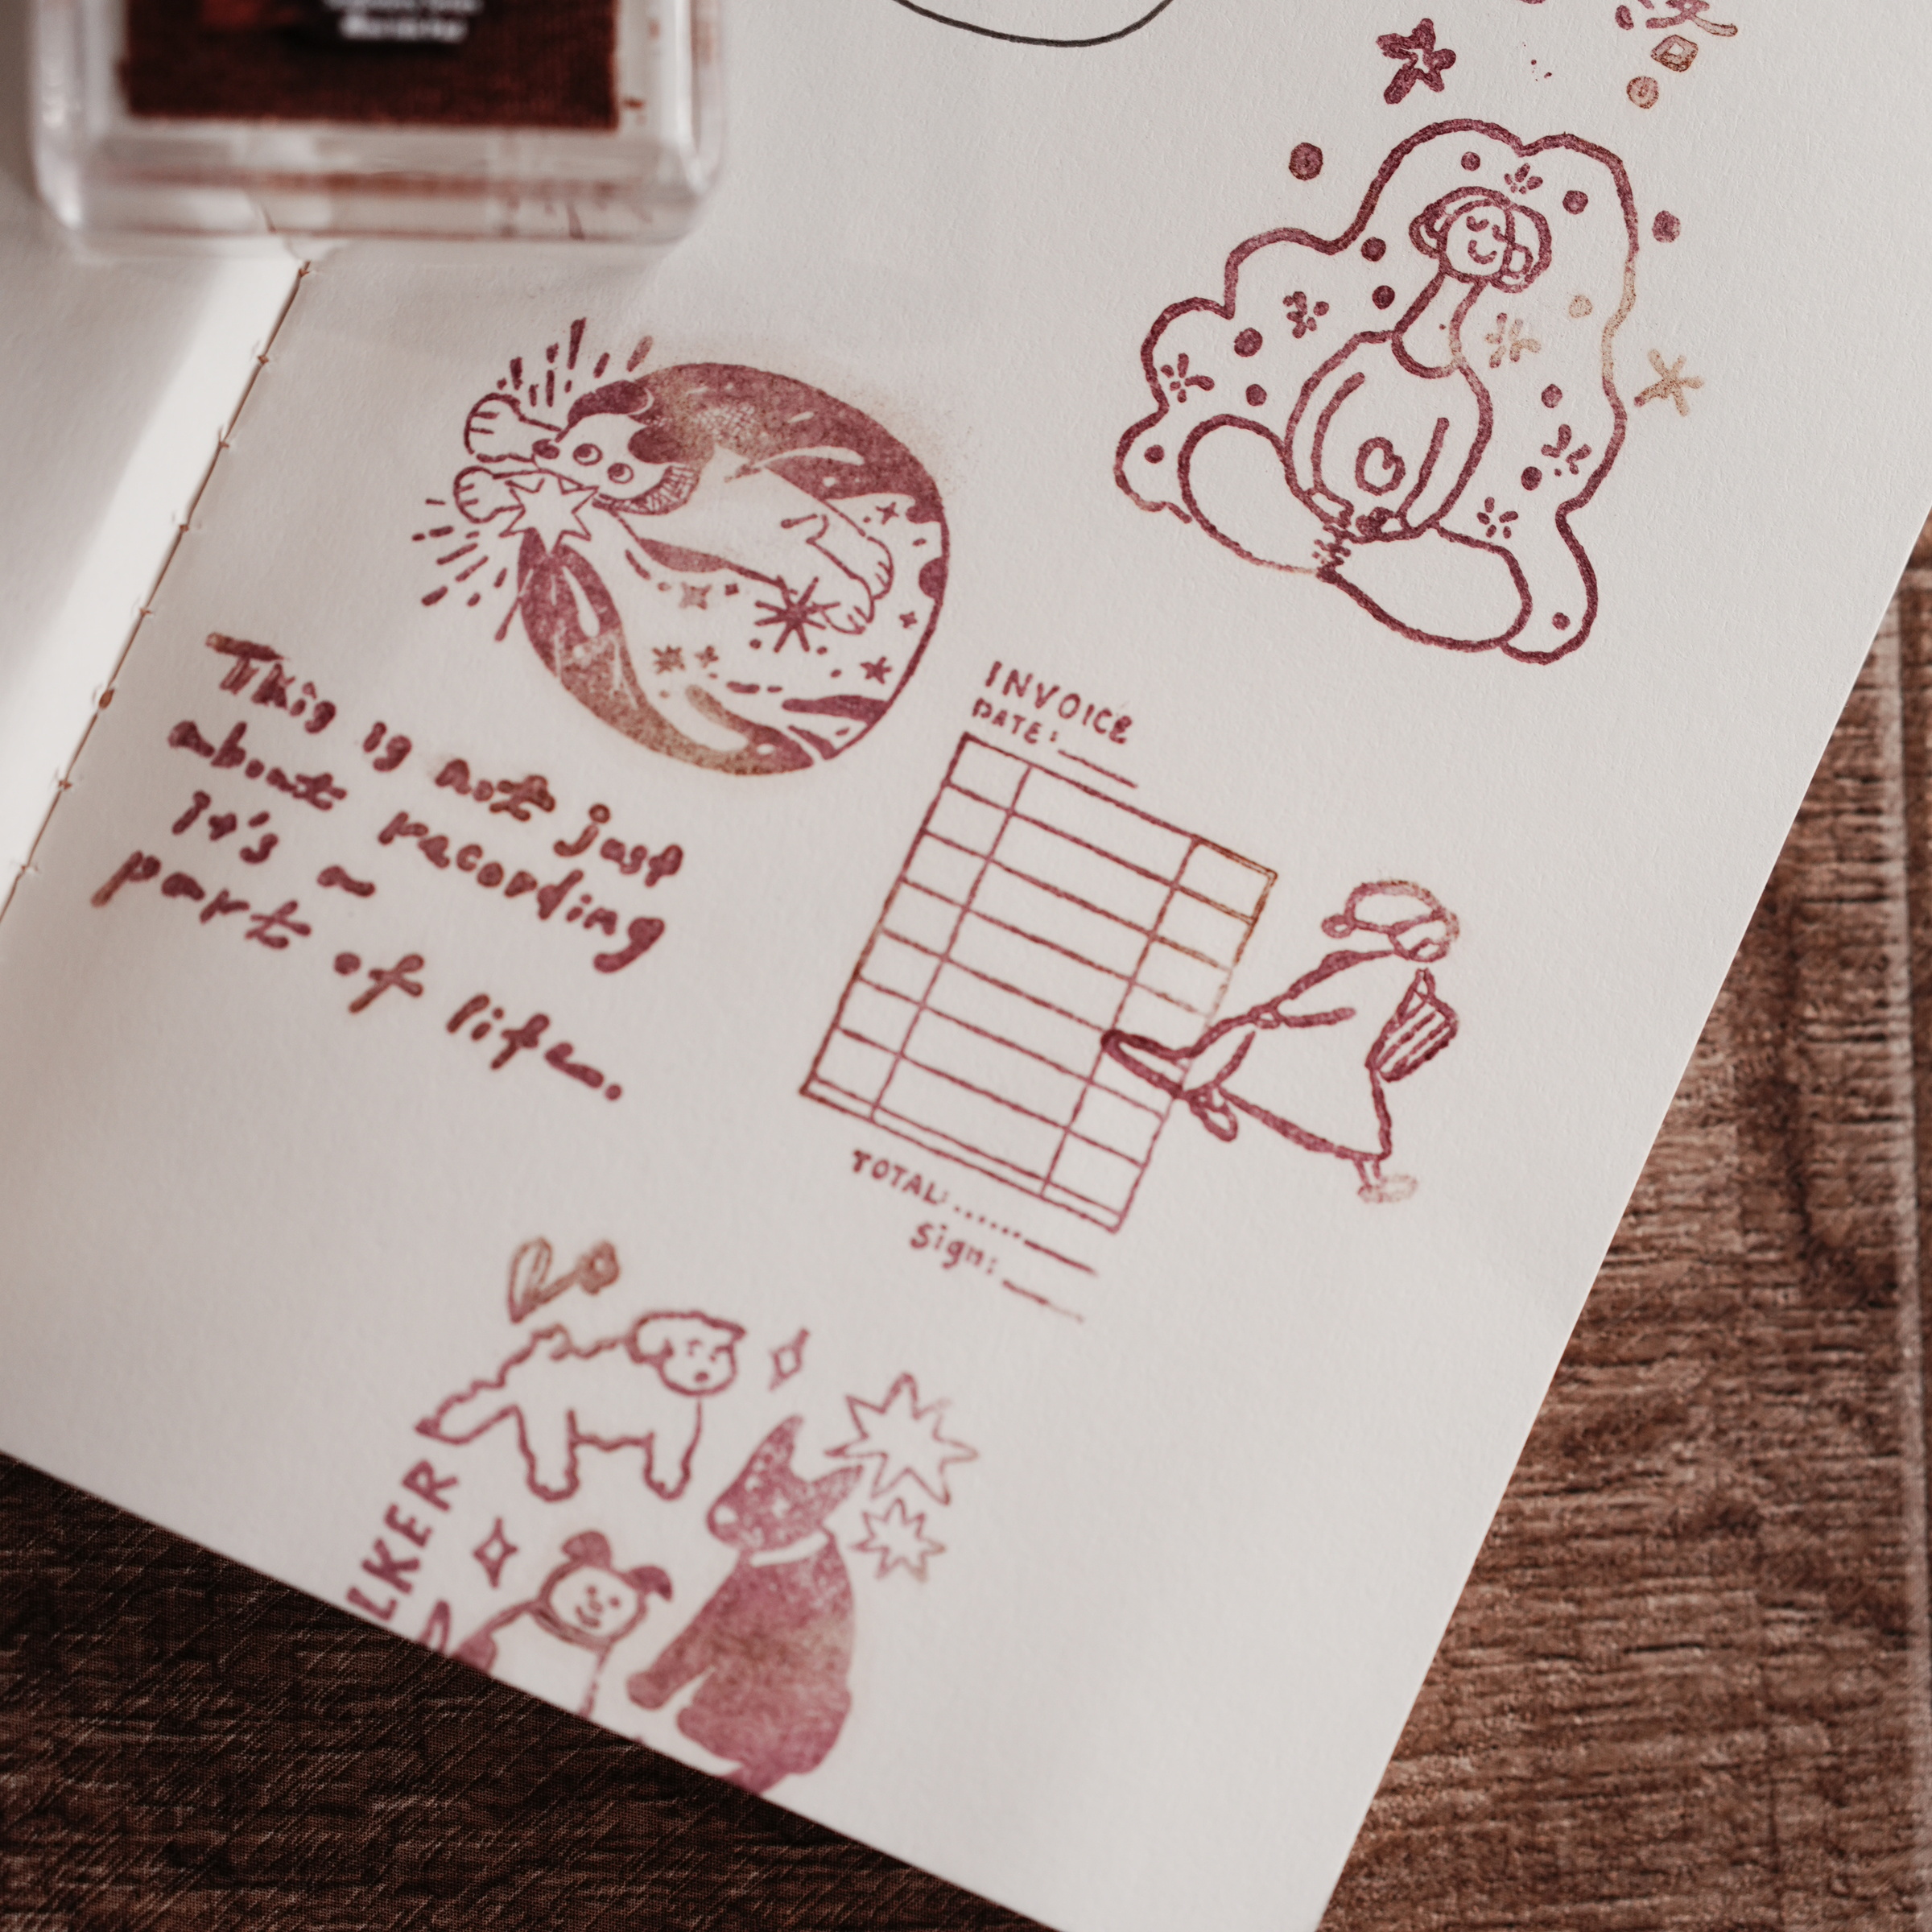 This is not just
about recording
It's a
part of life.
INVOICE
DATE:
TOTAL:
Sign:
LKER